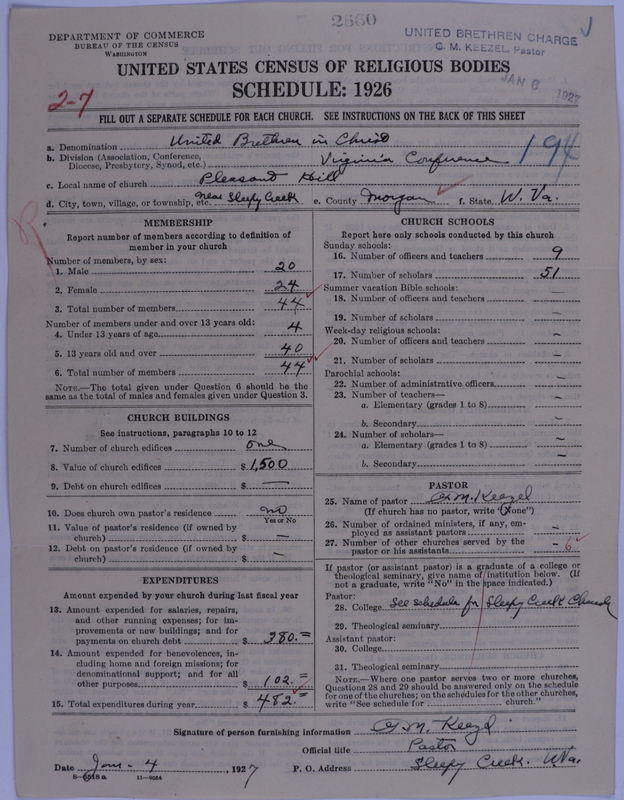 2660
DEPARTMENT OF COMMERCE
BUREAU OF THE CENSUS
WASHINGTON
UNITED BRETHREN CHARGE
G. M. KEEZEL, Pastor
JAN 6 1927
UNITED STATES CENSUS OF RELIGIOUS BODIES
SCHEDULE: 1926
2-7
FILL OUT A SEPARATE SCHEDULE FOR EACH CHURCH. SEE INSTRUCTIONS ON THE BACK OF THIS SHEET
a. Denomination United Brethren in Christ
194
b. Division (Association, Conference,
Diocese, Presbytery, Synod, etc.) Virginia Conference
c. Local name of church Pleasant Hill
d. City, town, village, or township, etc. Near Sleepy Creek e. County Morgan f. State W. Va.
MEMBERSHIP
Report number of members according to definition of
member in your church
Number of members, by sex:
1. Male 20
2. Female 24
3. Total number of members 44
Number of members under and over 13 years old:
4. Under 13 years of age 4
5. 13 years old and over 40
6. Total number of members 44
NOTE.—The total given under Question 6 should be the
same as the total of males and females given under Question 3.
CHURCH BUILDINGS
See instructions, paragraphs 10 to 12
7. Number of church edifices one
8. Value of church edifices $ 1,500
9. Debt on church edifices $ —
10. Does church own pastor's residence no
Yes or No
11. Value of pastor's residence (if owned by
church) $ —
12. Debt on pastor's residence (if owned by
church) $ —
EXPENDITURES
Amount expended by your church during last fiscal year
13. Amount expended for salaries, repairs,
and other running expenses; for im-
provements or new buildings; and for
payments on church debt $ 380.=
14. Amount expended for benevolences, in-
cluding home and foreign missions; for
denominational support; and for all
other purposes $ 102.=
15. Total expenditures during year $ 482.=
CHURCH SCHOOLS
Report here only schools conducted by this church
Sunday schools:
16. Number of officers and teachers 9
17. Number of scholars 51
Summer vacation Bible schools:
18. Number of officers and teachers —
19. Number of scholars —
Week-day religious schools:
20. Number of officers and teachers —
21. Number of scholars —
Parochial schools:
22. Number of administrative officers —
23. Number of teachers—
a. Elementary (grades 1 to 8) —
b. Secondary —
24. Number of scholars—
a. Elementary (grades 1 to 8) —
b. Secondary —
PASTOR
25. Name of pastor G. M. Keezel
(If church has no pastor, write "None")
26. Number of ordained ministers, if any, em-
ployed as assistant pastors —
27. Number of other churches served by the
pastor or his assistants — 6
If pastor (or assistant pastor) is a graduate of a college or
theological seminary, give name of institution below. (If
not a graduate, write "No" in the space indicated.)
Pastor:
28. College See schedule for Sleepy Creek Church
29. Theological seminary
Assistant pastor:
30. College
31. Theological seminary
NOTE.—Where one pastor serves two or more churches,
Questions 28 and 29 should be answered only on the schedule
for one of the churches; on the schedules for the other churches,
write "See schedule for church."
Signature of person furnishing information G. M. Keezel
Official title Pastor
Date Jan - 4, 1927 P. O. Address Sleepy Creek. W.Va.
8—5518 a 11—9064